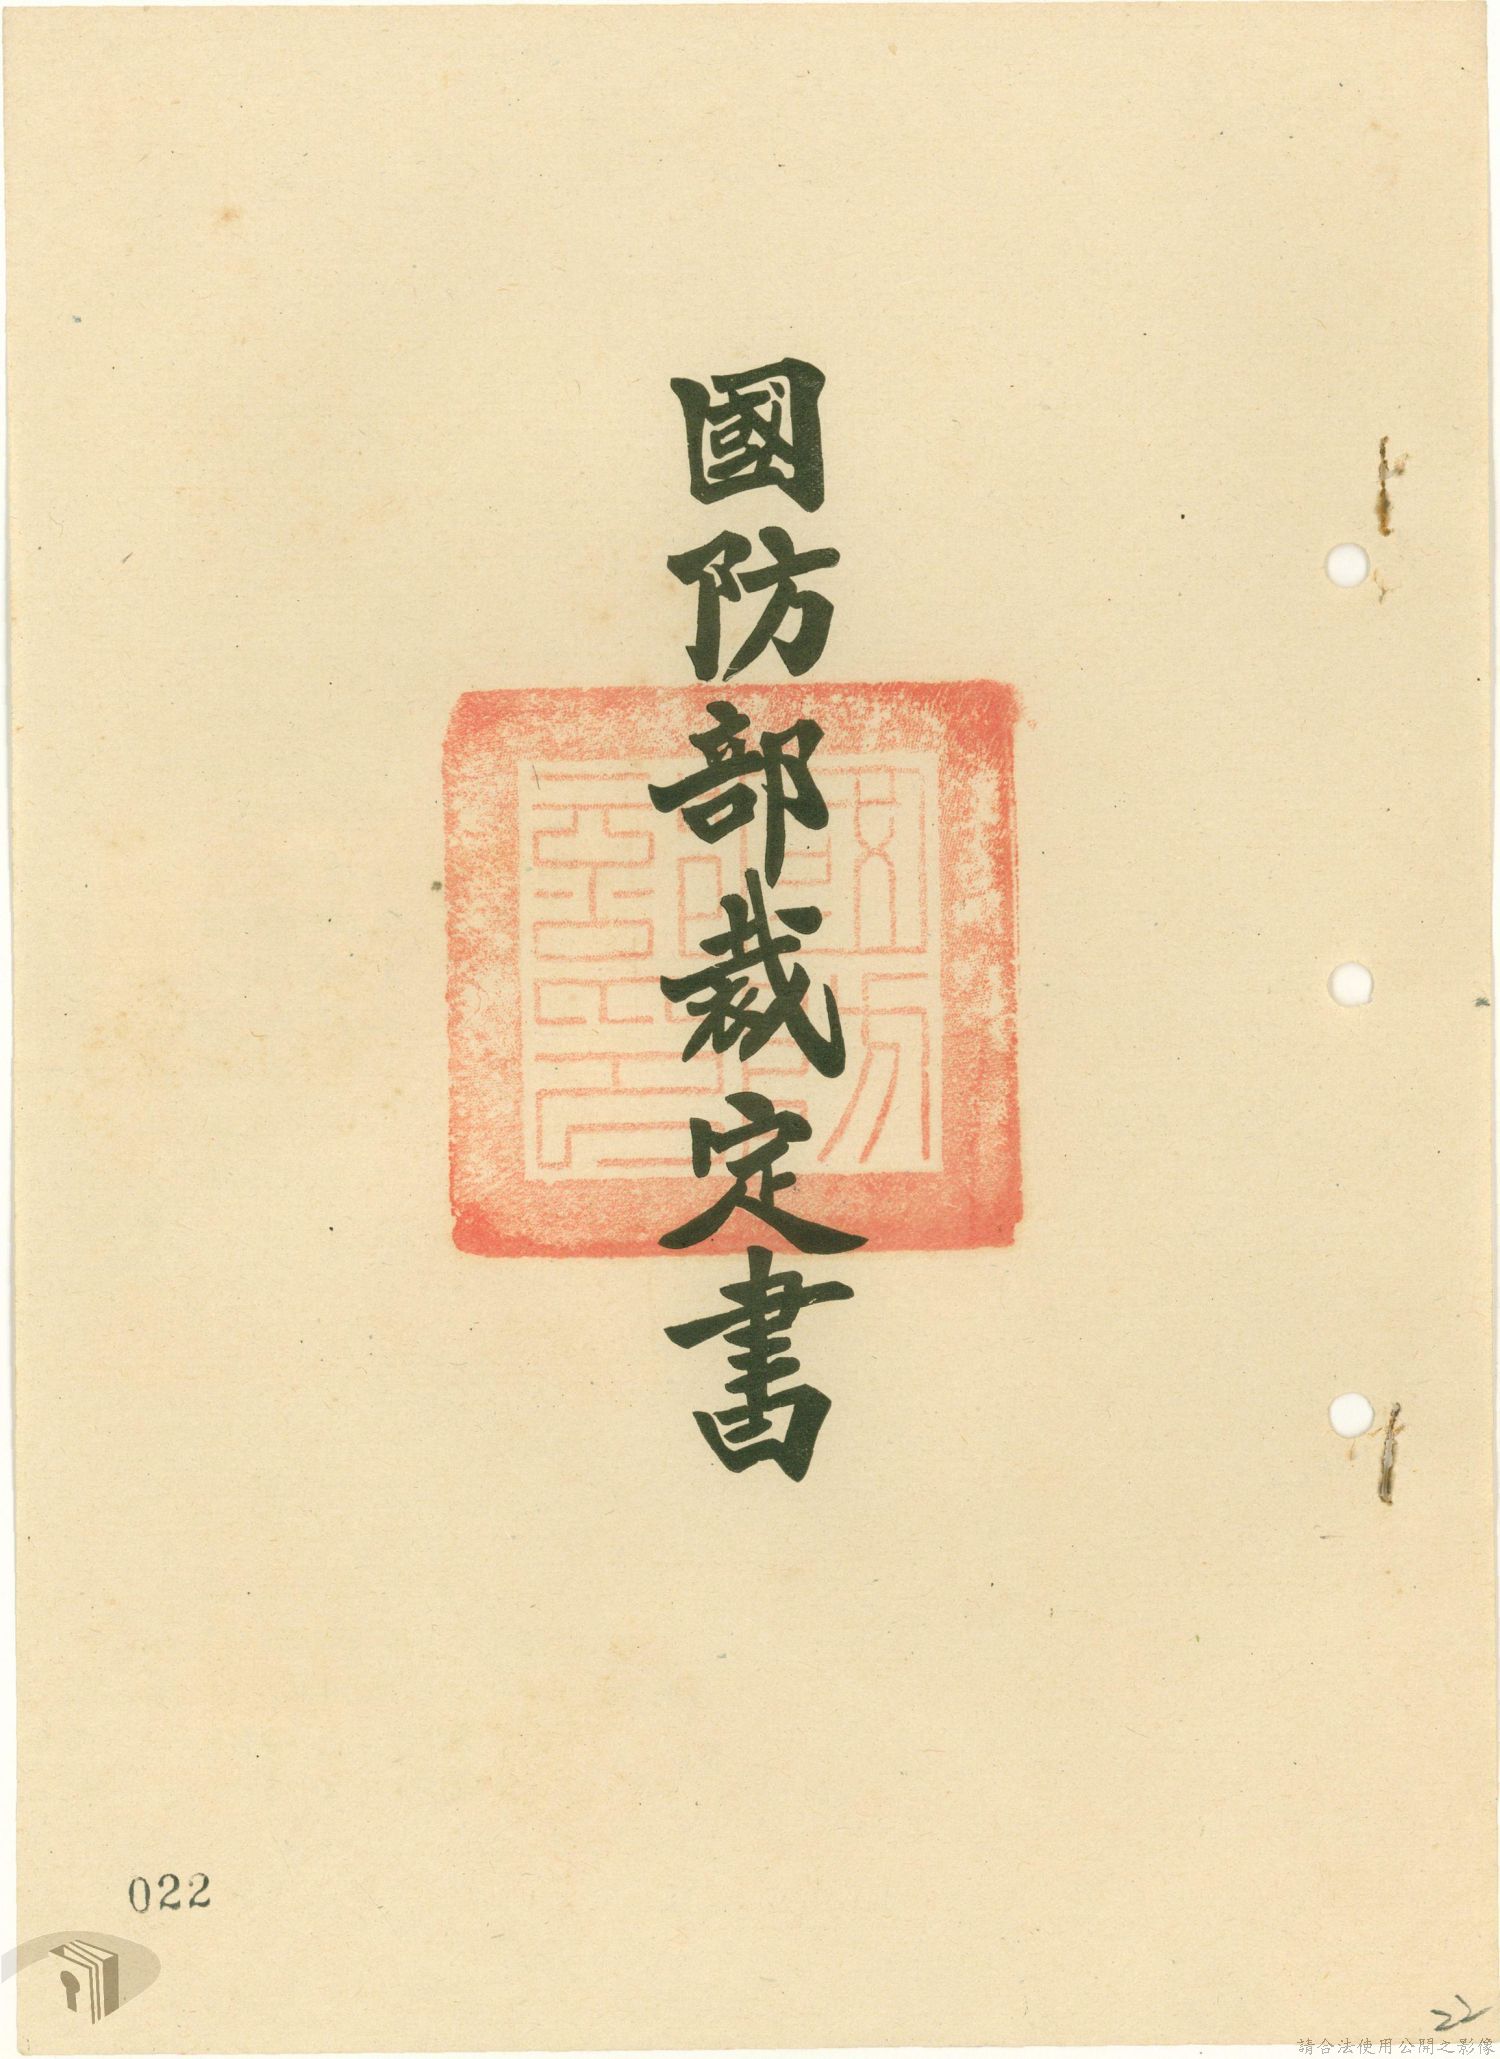 國防部裁定書
022
22
請合法使用公開之影像